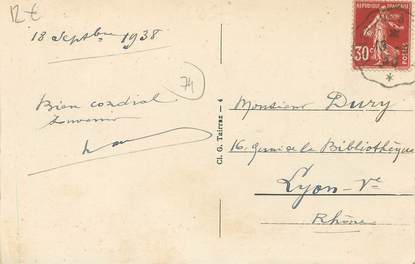 12 €
18 Septbre 1938
74
Bien cordial
Souvenir
RÉPUBLIQUE FRANÇAISE
30c
POSTES
Cl. G. Tairraz - 4
Monsieur Dury
16. quai de la Bibliothèque
Lyon - Ve
Rhône